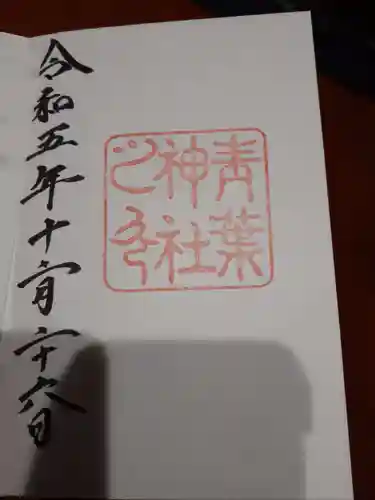 青葉
神社
之印
令和五年十二月二十六日